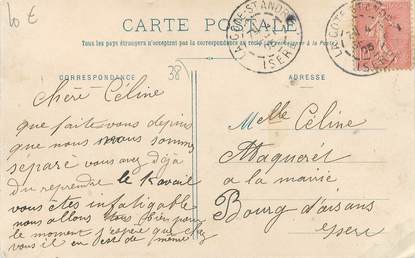 10 €
CARTE POSTALE
Tous les pays étrangers n'acceptent pas la correspondance au recto
LA CÔTE-ST ANDRÉ
ISÈRE
CORRESPONDANCE
38
ADRESSE
chère Céline
que faite vous depuis
que nous nous somms
séparé vous avez déjà
du reprendre le travail
vous êtes infatigable
nous allons tous bien pour
le moment j'espère que chez
vous il en de même
Melle Céline
Maquerét
a la mairié
Bourg d'oisans
Isere